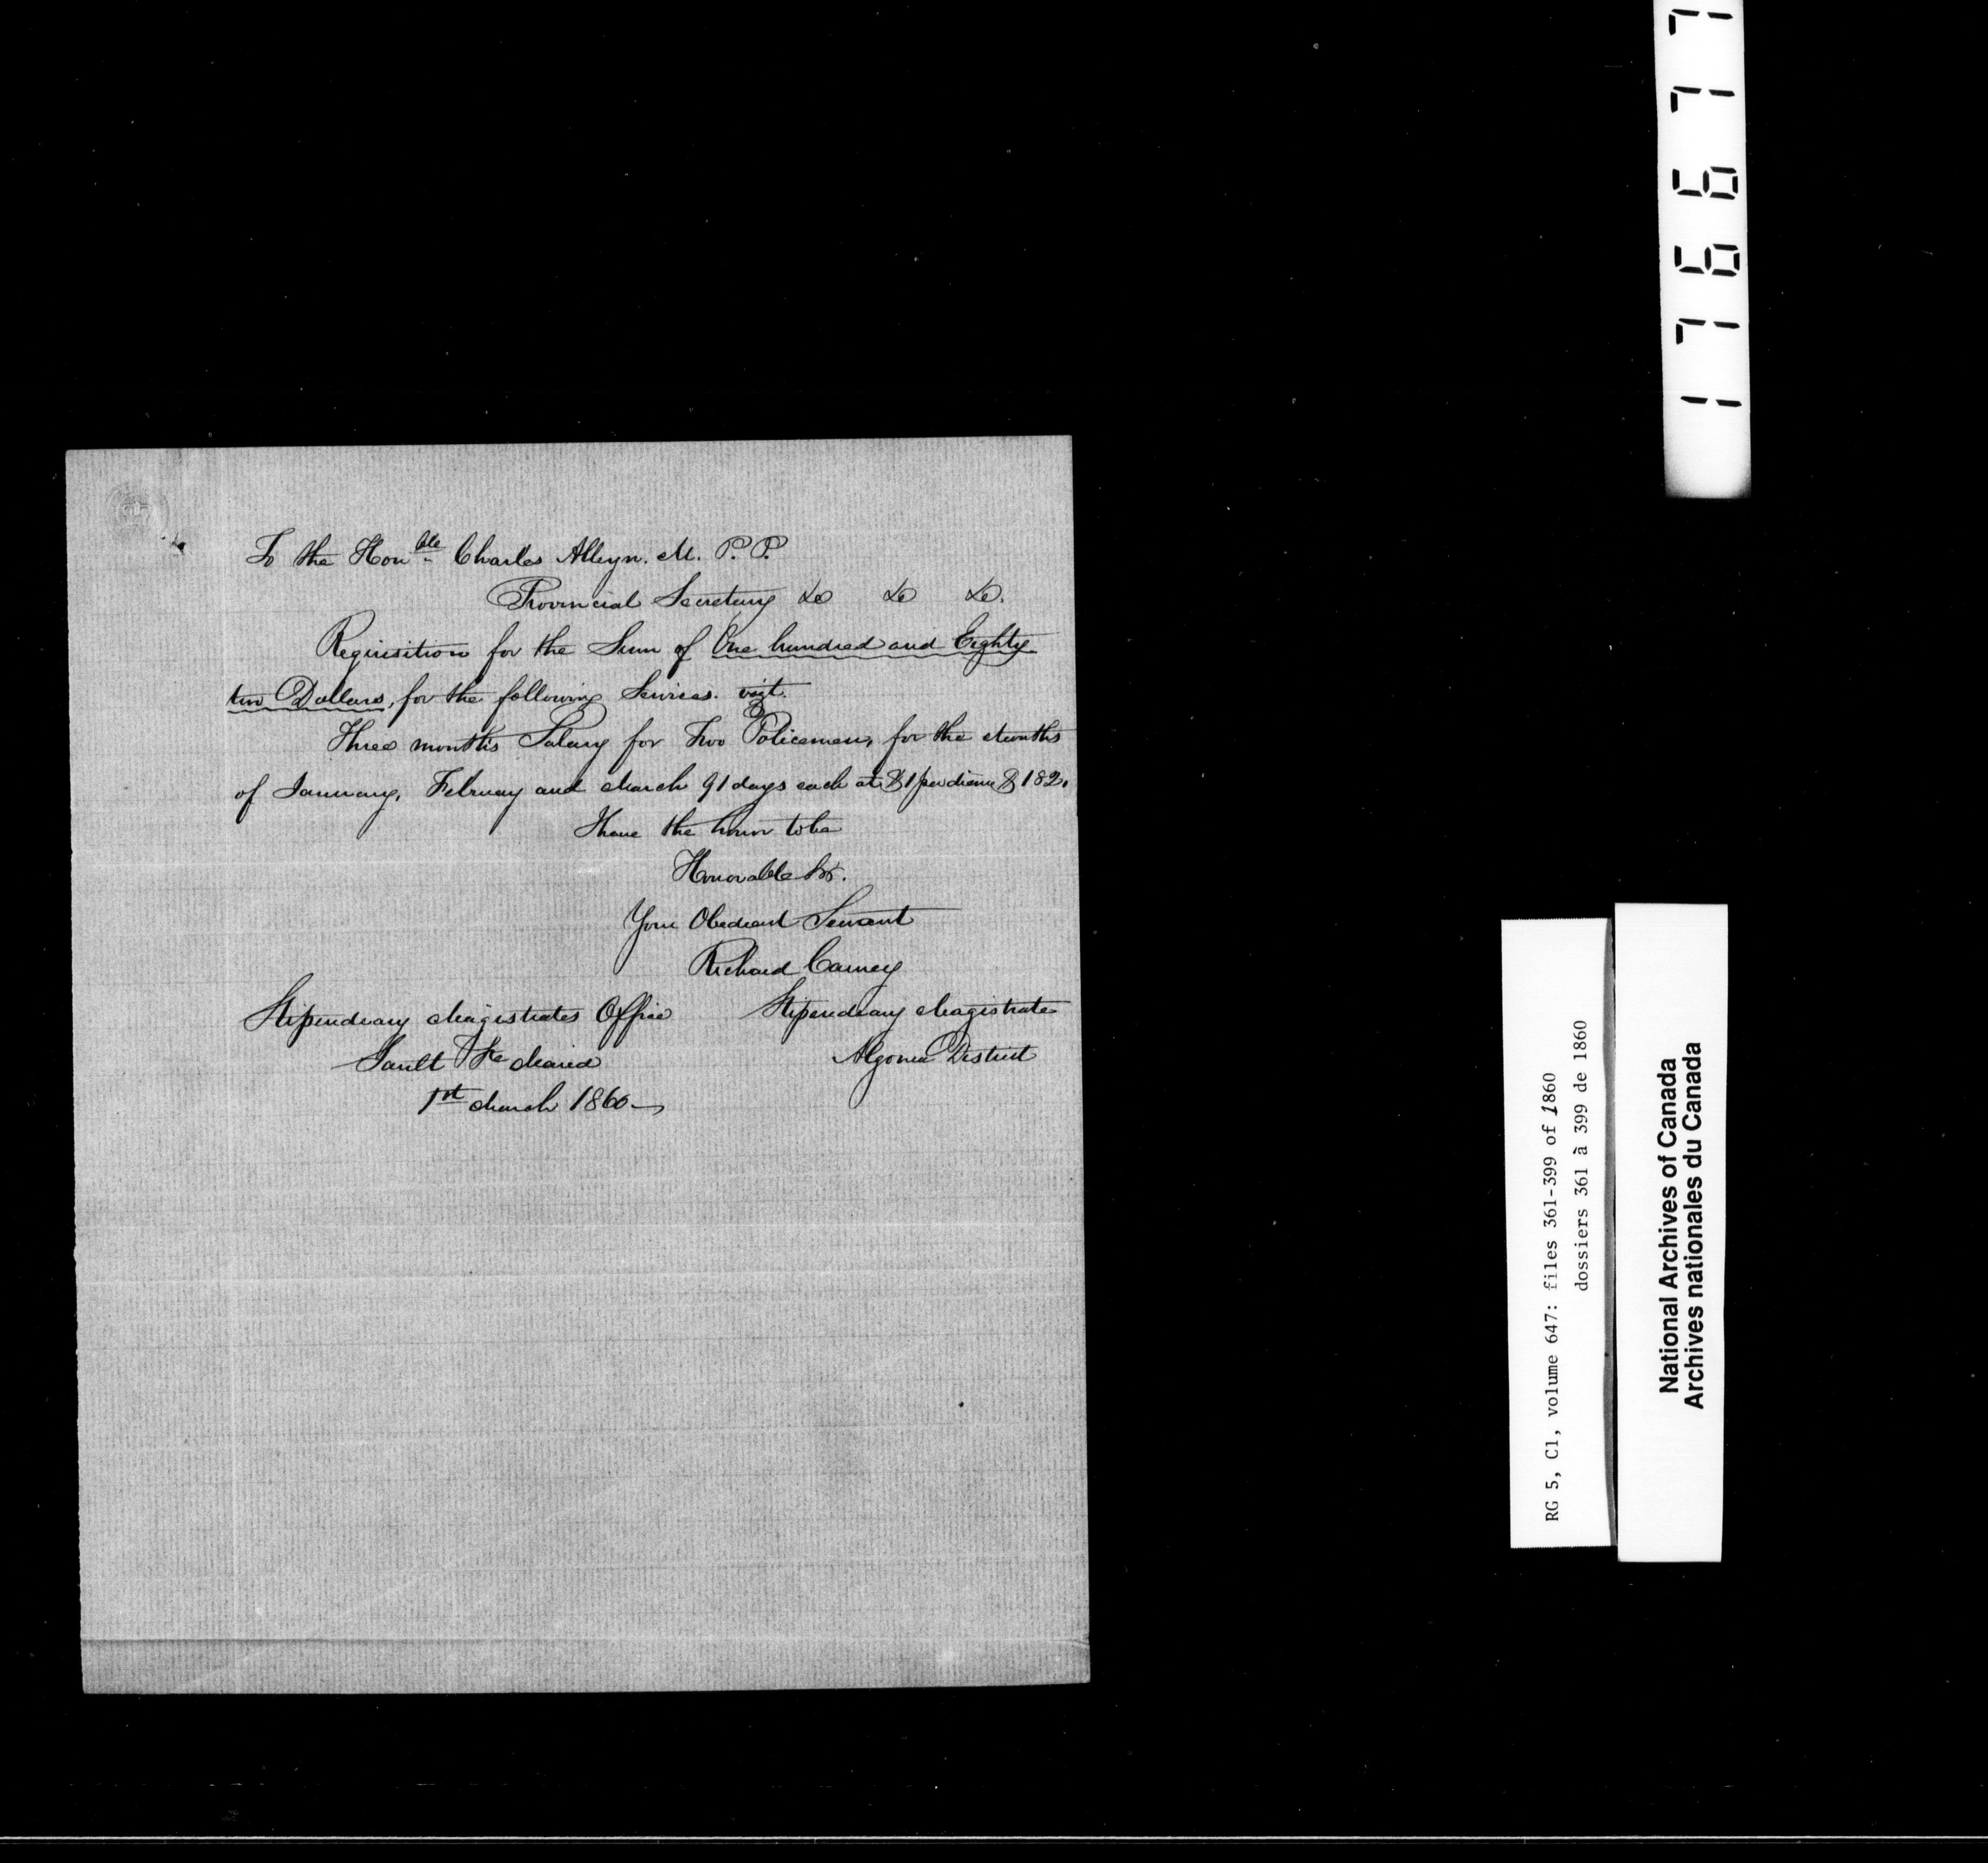 To the Honble Charles Alleyn. M. P. P.
Provincial Secretary &c &c &c.
Requisition for the Sum of One hundred and Eighty
two Dollars, for the following Services. vizt.
Three months Salary for Two Policemen, for the Months
of January, February and March 91 days each at $1 per diem $182.
I have the honor to be
Honorable Sir.
Your Obedient Servant
Richard Carney
Stipendiary Magistrate
Algoma District
Stipendiary Magistrates Office
Sault Ste Marie
1st March 1860
176677
RG 5, C1, volume 647: files 361-399 of 1860
dossiers 361 à 399 de 1860
National Archives of Canada
Archives nationales du Canada